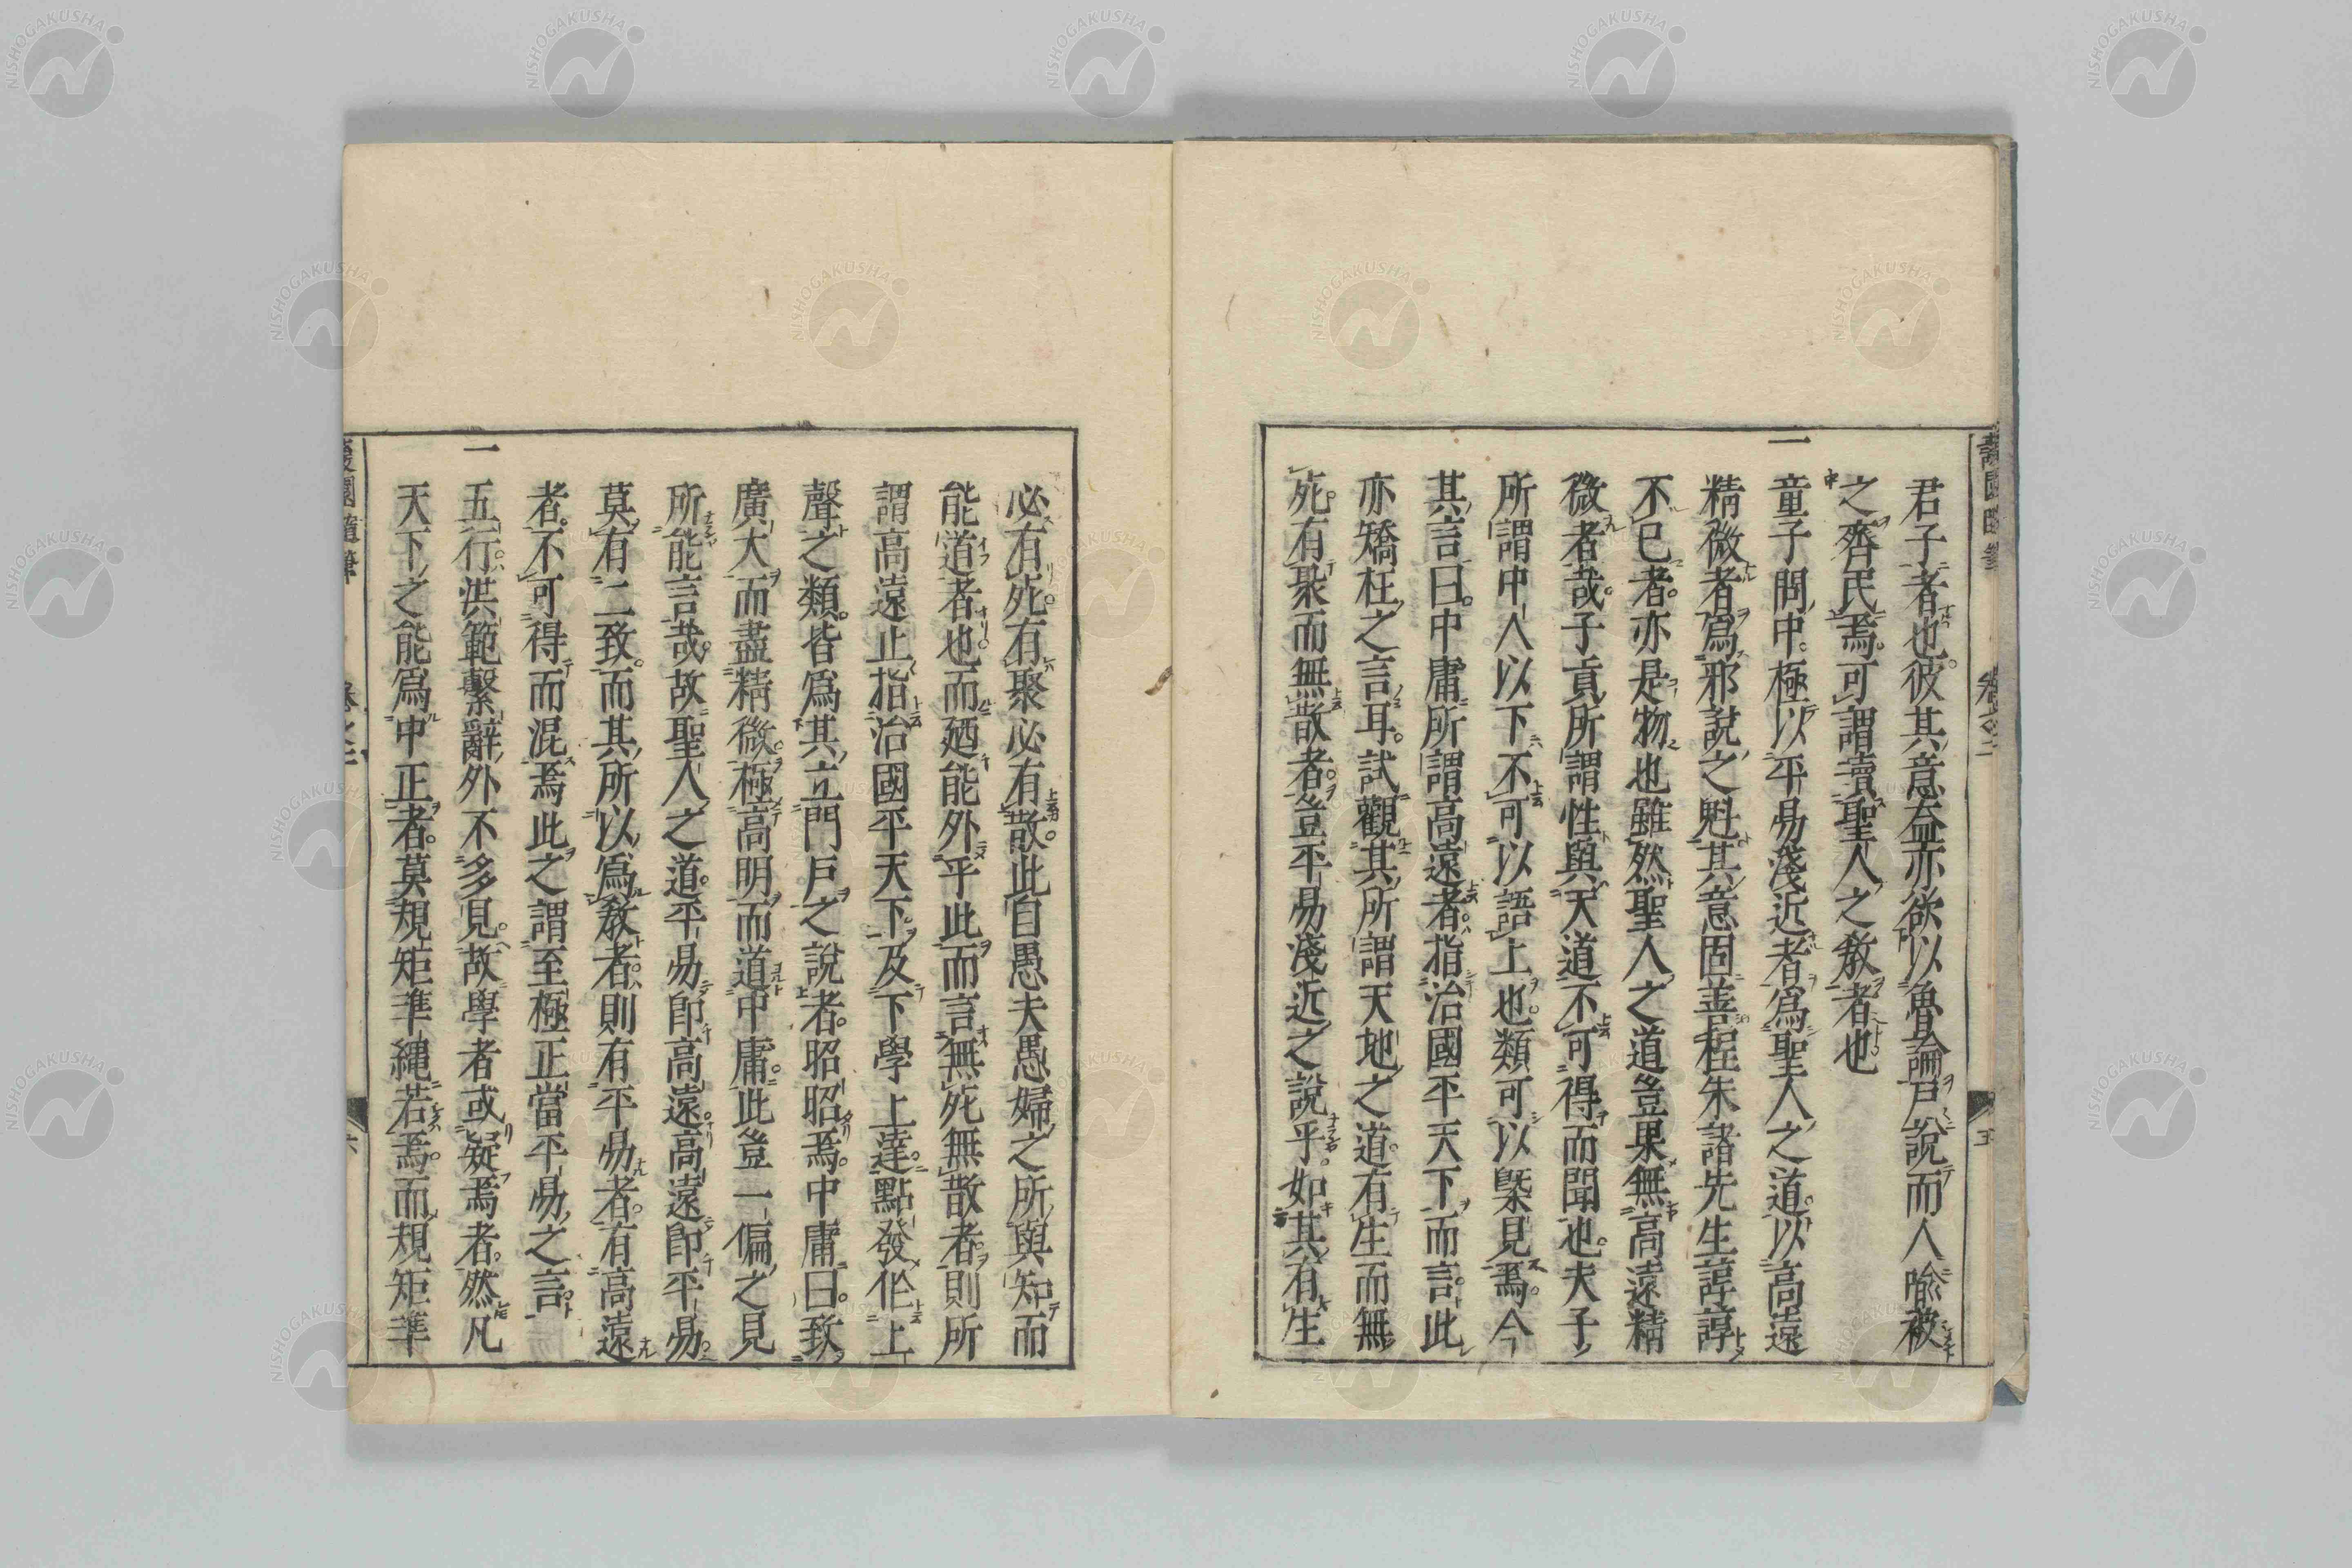 君子者也彼其意益亦欲以魯論戸說而人喩被
之齊民焉可謂讀聖人之敎者也
一童子問中極以平易淺近者爲聖人之道以高遠
精微者爲邪說之魁其意固善程朱諸先生諄諄
不已者亦是物也雖然聖人之道豈果無高遠精
微者哉子貢所謂性與天道不可得而聞也夫子
所謂中人以下不可以語上也類可以槩見焉今
其言曰中庸所謂高遠者指治國平天下而言此
亦矯枉之言耳試觀其所謂天地之道有生而無
死有聚而無散者豈平易淺近之說乎如其有生
必有死有聚必有散此自愚夫愚婦之所與知而
能道者也而廼能外乎此而言無死無散者則所
謂高遠止指治國平天下及下學上達點發化上
聲之類皆爲其立門戸之說者昭昭焉中庸曰致
廣大而盡精微極高明而道中庸此豈一偏之見
所能言哉故聖人之道平易卽高遠高遠卽平易
莫有二致而其所以爲敎者則有平易者有高遠
者不可得而混焉此之謂至極正當平易之言
一五行洪範繫辭外不多見故學者或疑焉者然凡
天下之能爲中正者莫規矩準縄若焉而規矩準